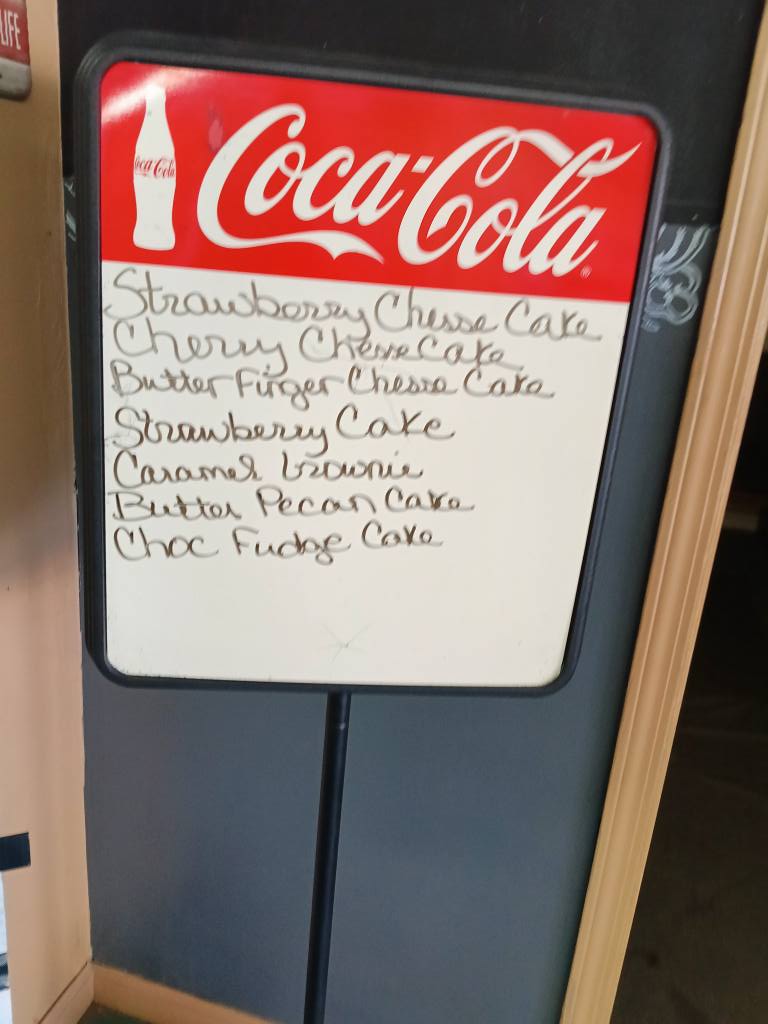 LIFE
Coca-Cola
Coca-Cola
Strawberry Chesse Cake
Cherry Chesse Cake
Butter Finger Chesse Cake
Strawberry Cake
Caramel brownie
Butter Pecan Cake
Choc Fudge Cake